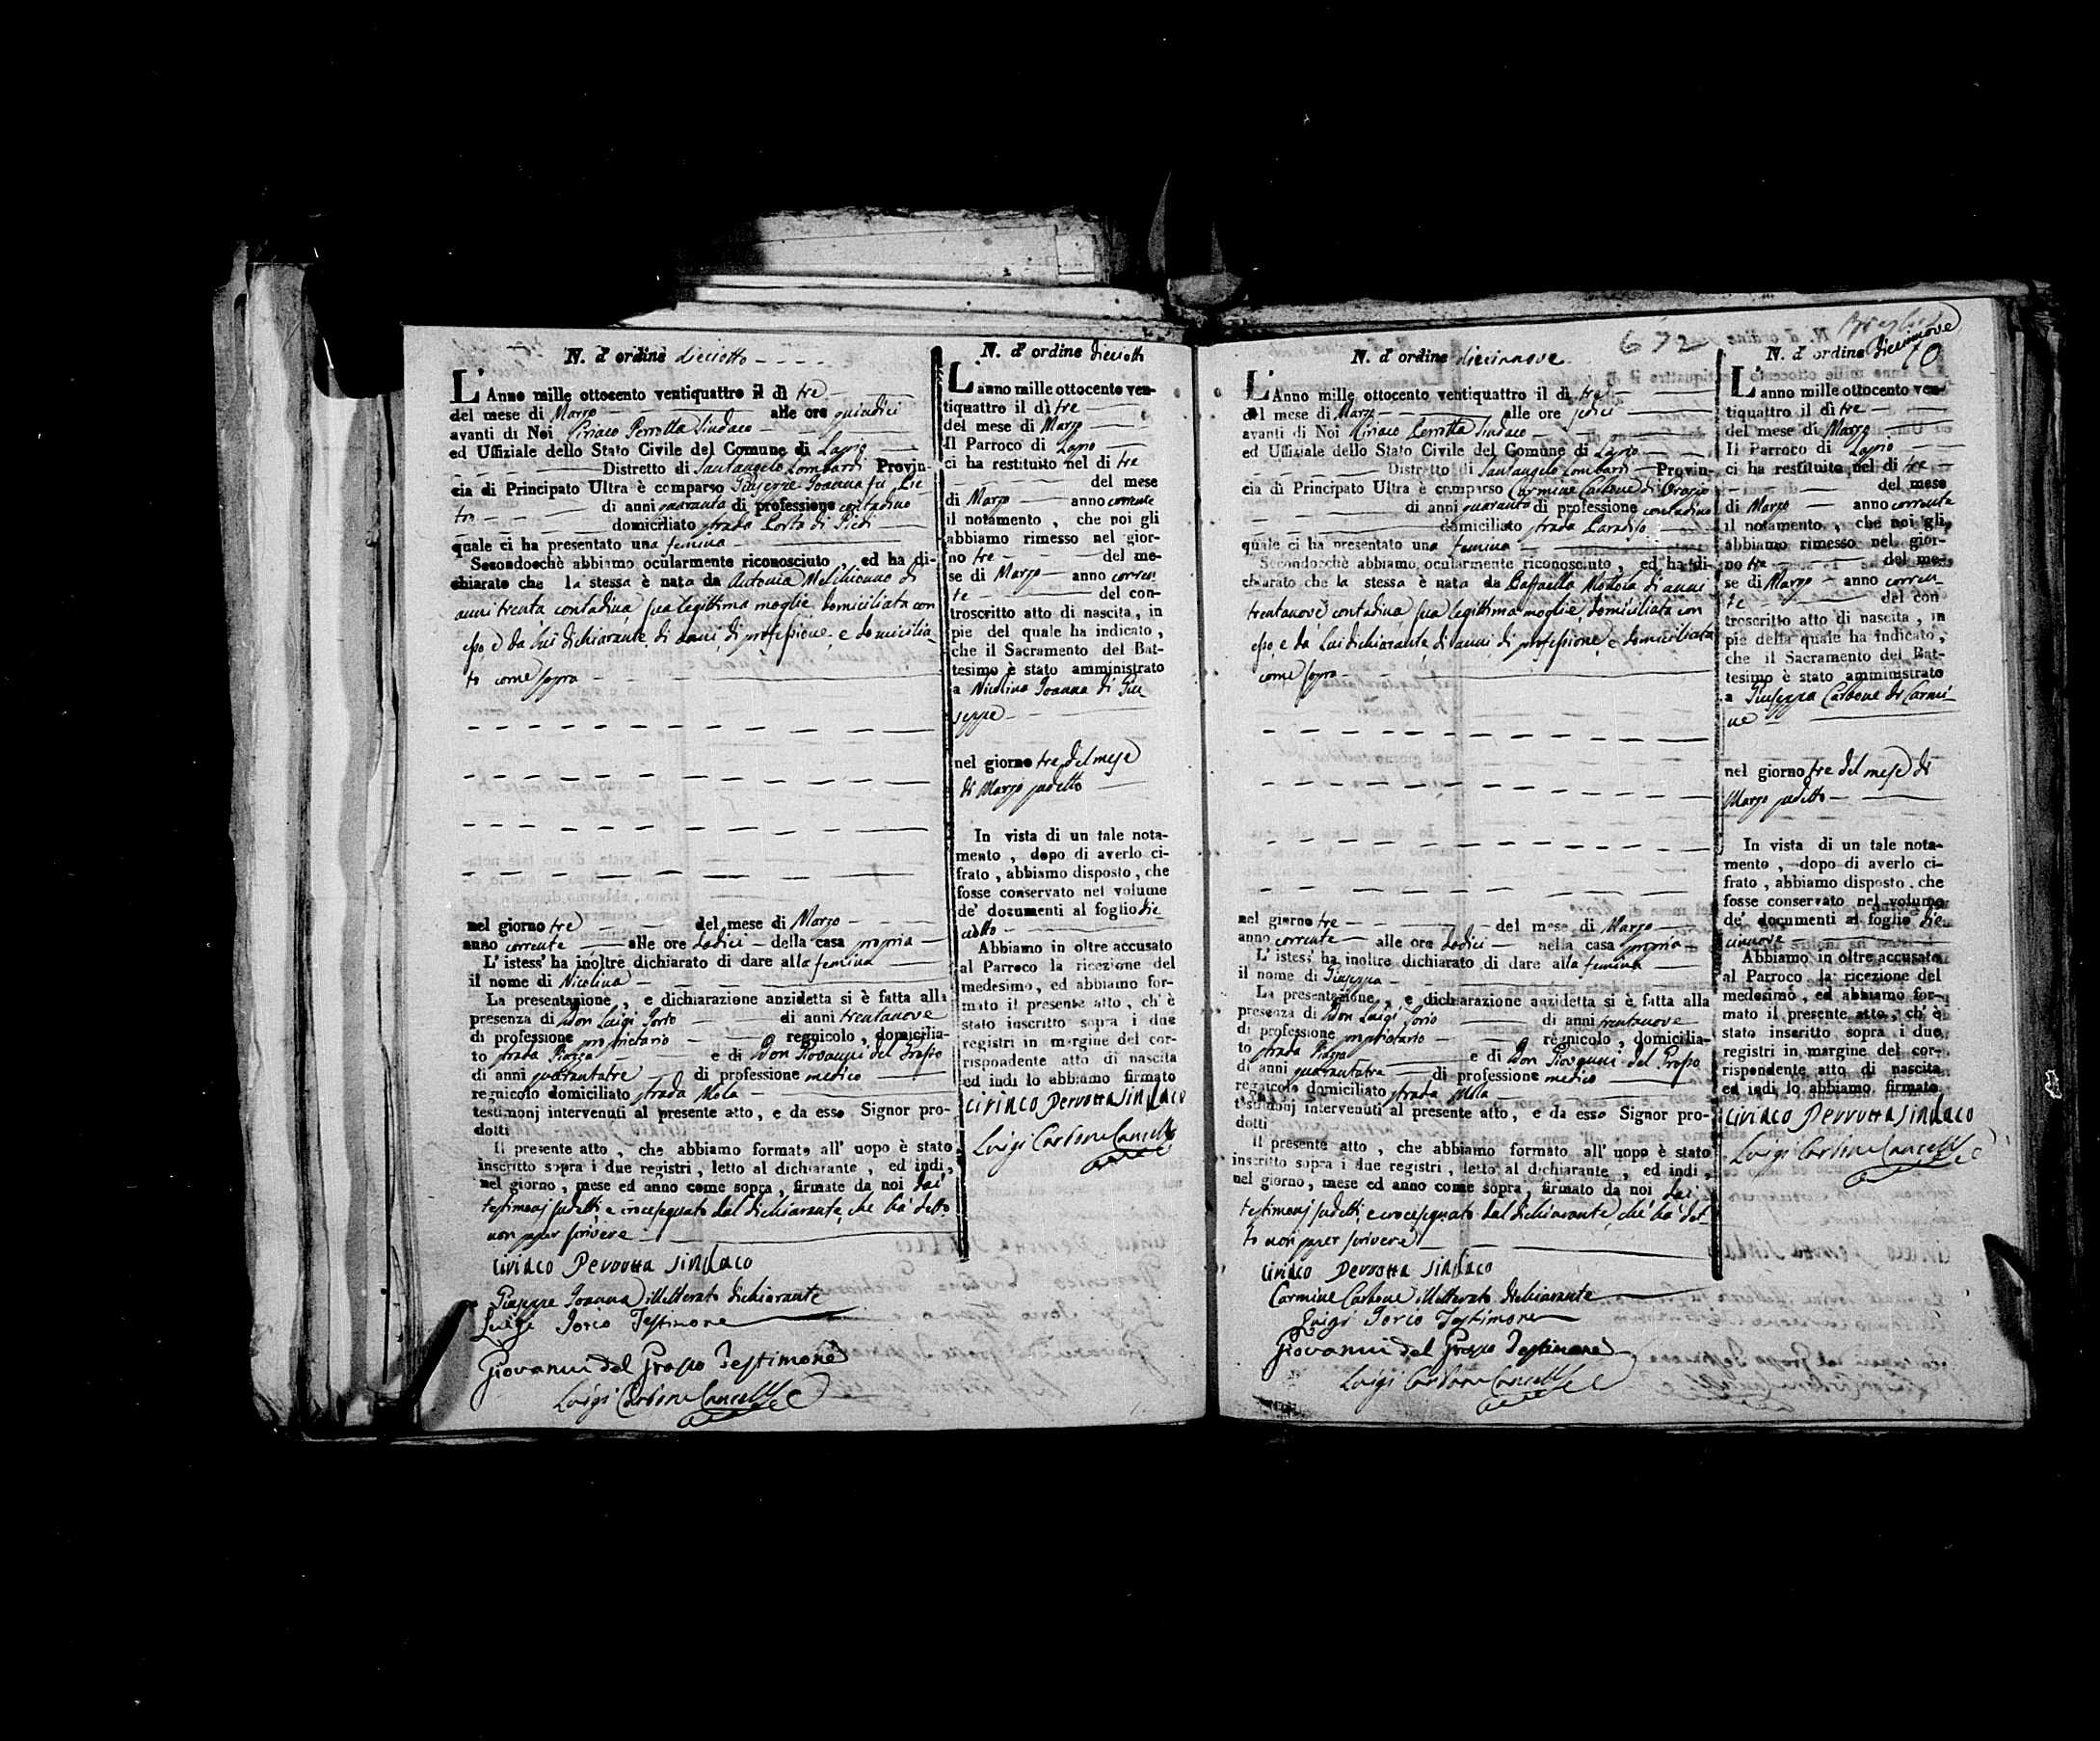 N. d' ordine dieciotto
L' Anno mille ottocento ventiquattro il dì tre
del mese di Marzo alle ore quindici
avanti di Noi Ciriaco Perrotta Sindaco
ed Uffiziale dello Stato Civile del Comune di Lapio
Distretto di Santangelo Lombardi Provin-
cia di Principato Ultra è comparso Giuseppe Ioanna fu Pie
tro di anni quaranta di professione contadino
domiciliato strada Porta di Piedi
quale ci ha presentato una femina
Secondocchè abbiamo ocularmente riconosciuto, ed ha di-
chiarato che la stessa è nata da Antonia Melchionno di
anni trenta contadina, sua legittima moglie, domiciliata con
esso, e da Lui dichiarante, di anni, di professione, e domicilia
to come sopra
nel giorno tre del mese di Marzo
anno corrente alle ore dodici della casa propria
L' istess' ha inoltre dichiarato di dare alla femina
il nome di Nicolina
La presentazione, e dichiarazione anzidetta si è fatta alla
presenza di Don Luigi Iorio di anni trentanove
di professione proprietario regnicolo, domicilia-
to strada Piazza e di Don Giovanni del Grosso
di anni quarantatre di professione medico
regnicolo domiciliato strada Mola
testimonj intervenuti al presente atto, e da esso Signor pro-
dotti
Il presente atto, che abbiamo formato all' uopo è stato
inscritto sopra i due registri, letto al dichiarante, ed indi,
nel giorno, mese ed anno come sopra, firmate da noi dai
testimonj sudetti, e crocesegnato dal dichiarante, che ha detto
non saper scrivere
Ciriaco Perrotta Sindaco
Giuseppe Ioanna illetterato dichiarante
Luigi Iorio Testimone
Giovanni del Grosso Testimone
Luigi Carbone Cancelle
N. d' ordine dieciotto
L' anno mille ottocento ven-
tiquattro il dì tre
del mese di Marzo
Il Parroco di Lapio
ci ha restituito nel dì tre
del mese
di Marzo anno corrente
il notamento, che noi gli
abbiamo rimesso nel gior-
no tre del me-
se di Marzo anno corren
te del con-
troscritto atto di nascita, in
pie del quale ha indicato,
che il Sacramento del Bat-
tesimo è stato amministrato
a Nicolina Ioanna di Giu
seppe
nel giorno tre del mese
di Marzo sudetto
In vista di un tale nota-
mento, dopo di averlo ci-
frato, abbiamo disposto, che
fosse conservato nel volume
de' documenti al foglio die
ciotto
Abbiamo in oltre accusato
al Parroco la ricezione del
medesimo, ed abbiamo for-
mato il presente atto, ch' è
stato inscritto sopra i due
registri in margine del cor-
rispondente atto di nascita
ed indi lo abbiamo firmato
Ciriaco Perrotta Sindaco
Luigi Carbone Cancelle
672
N. d' ordine diecinnove
L' Anno mille ottocento ventiquattro il dì tre
del mese di Marzo alle ore sedici
avanti di Noi Ciriaco Perrotta Sindaco
ed Uffiziale dello Stato Civile del Comune di Lapio
Distretto di Santangelo Lombardi Provin-
cia di Principato Ultra è comparso Carmine Carbone di Orazio
di anni quaranta di professione contadino
domiciliato strada Paradiso
quale ci ha presentato una femina
Secondocchè abbiamo ocularmente riconosciuto, ed ha di-
chiarato che la stessa è nata da Raffaella Mottola di anni
trentanove contadina, sua legittima moglie, domiciliata con
esso, e da Lui dichiarante, di anni, di professione, e domiciliata
come sopra
nel giorno tre del mese di Marzo
anno corrente alle ore dodici nella casa propria
L' istess' ha inoltre dichiarato di dare alla femina
il nome di Giuseppa
La presentazione, e dichiarazione anzidetta si è fatta alla
presenza di Don Luigi Iorio di anni trentanove
di professione proprietario regnicolo, domicilia-
to strada Piazza e di Don Giovanni del Grosso
di anni quarantatre di professione medico
regnicolo domiciliato strada Mola
testimonj intervenuti al presente atto, e da esso Signor pro-
dotti
Il presente atto, che abbiamo formato all' uopo è stato
inscritto sopra i due registri, letto al dichiarante, ed indi,
nel giorno, mese ed anno come sopra, firmato da noi dai
testimonj sudetti, e crocesegnato dal dichiarante, che ha det
to non saper scrivere
Ciriaco Perrotta Sindaco
Carmine Carbone illetterato dichiarante
Luigi Iorio Testimone
Giovanni del Grosso Testimone
Luigi Carbone Cancelle
N. d' ordine diecinnove
L' anno mille ottocento ven-
tiquattro il dì tre
del mese di Marzo
Il Parroco di Lapio
ci ha restituito nel dì tre
del mese
di Marzo anno corrente
il notamento, che noi gli
abbiamo rimesso nel gior-
no tre del me-
se di Marzo anno corren
te del con
troscritto atto di nascita, in
pie della quale ha indicato,
che il Sacramento del Bat-
tesimo è stato amministrato
a Giuseppa Carbone di Carmi-
ne
nel giorno tre del mese di
Marzo sudetto
In vista di un tale nota-
mento, dopo di averlo ci-
frato, abbiamo disposto, che
fosse conservato nel volume
de' documenti al foglio die
cinnove
Abbiamo in oltre accusato
al Parroco la ricezione del
medesimo, ed abbiamo for-
mato il presente atto, ch' è
stato inscritto sopra i due
registri in margine del cor-
rispondente atto di nascita
ed indi lo abbiamo firmato
Ciriaco Perrotta Sindaco
Luigi Carbone Cancelle